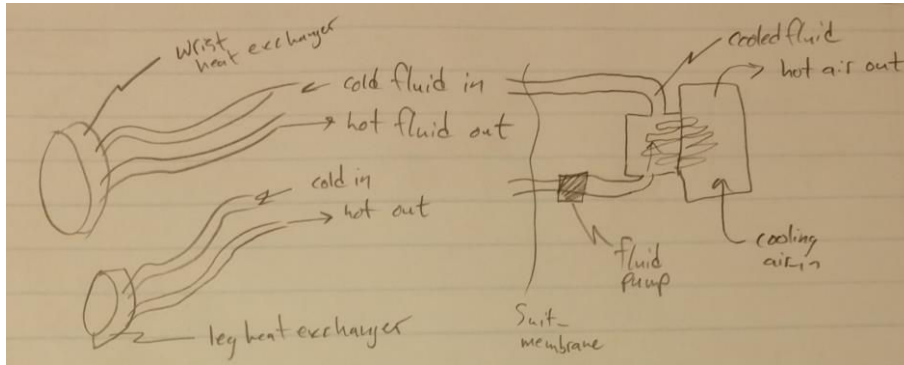 wrist
heat exchanger
cold fluid in
hot fluid out
cold in
hot out
leg heat exchanger
cooled fluid
hot air out
fluid
pump
cooling
air in
Suit
membrane